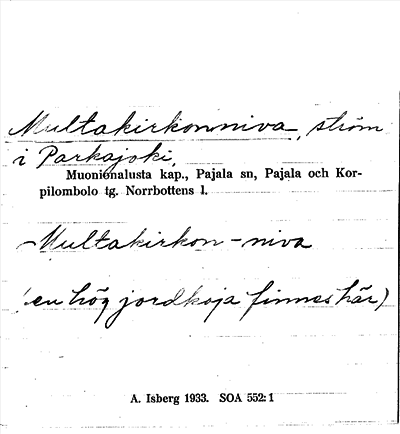 Multakirkonniva, ström
i Parkajoki,
Muonionalusta kap., Pajala sn, Pajala och Kor-
pilombolo tg. Norrbottens l.
Multakirkon-niva
(en hög jordkoja finnes här)
A. Isberg 1933. SOA 552:1